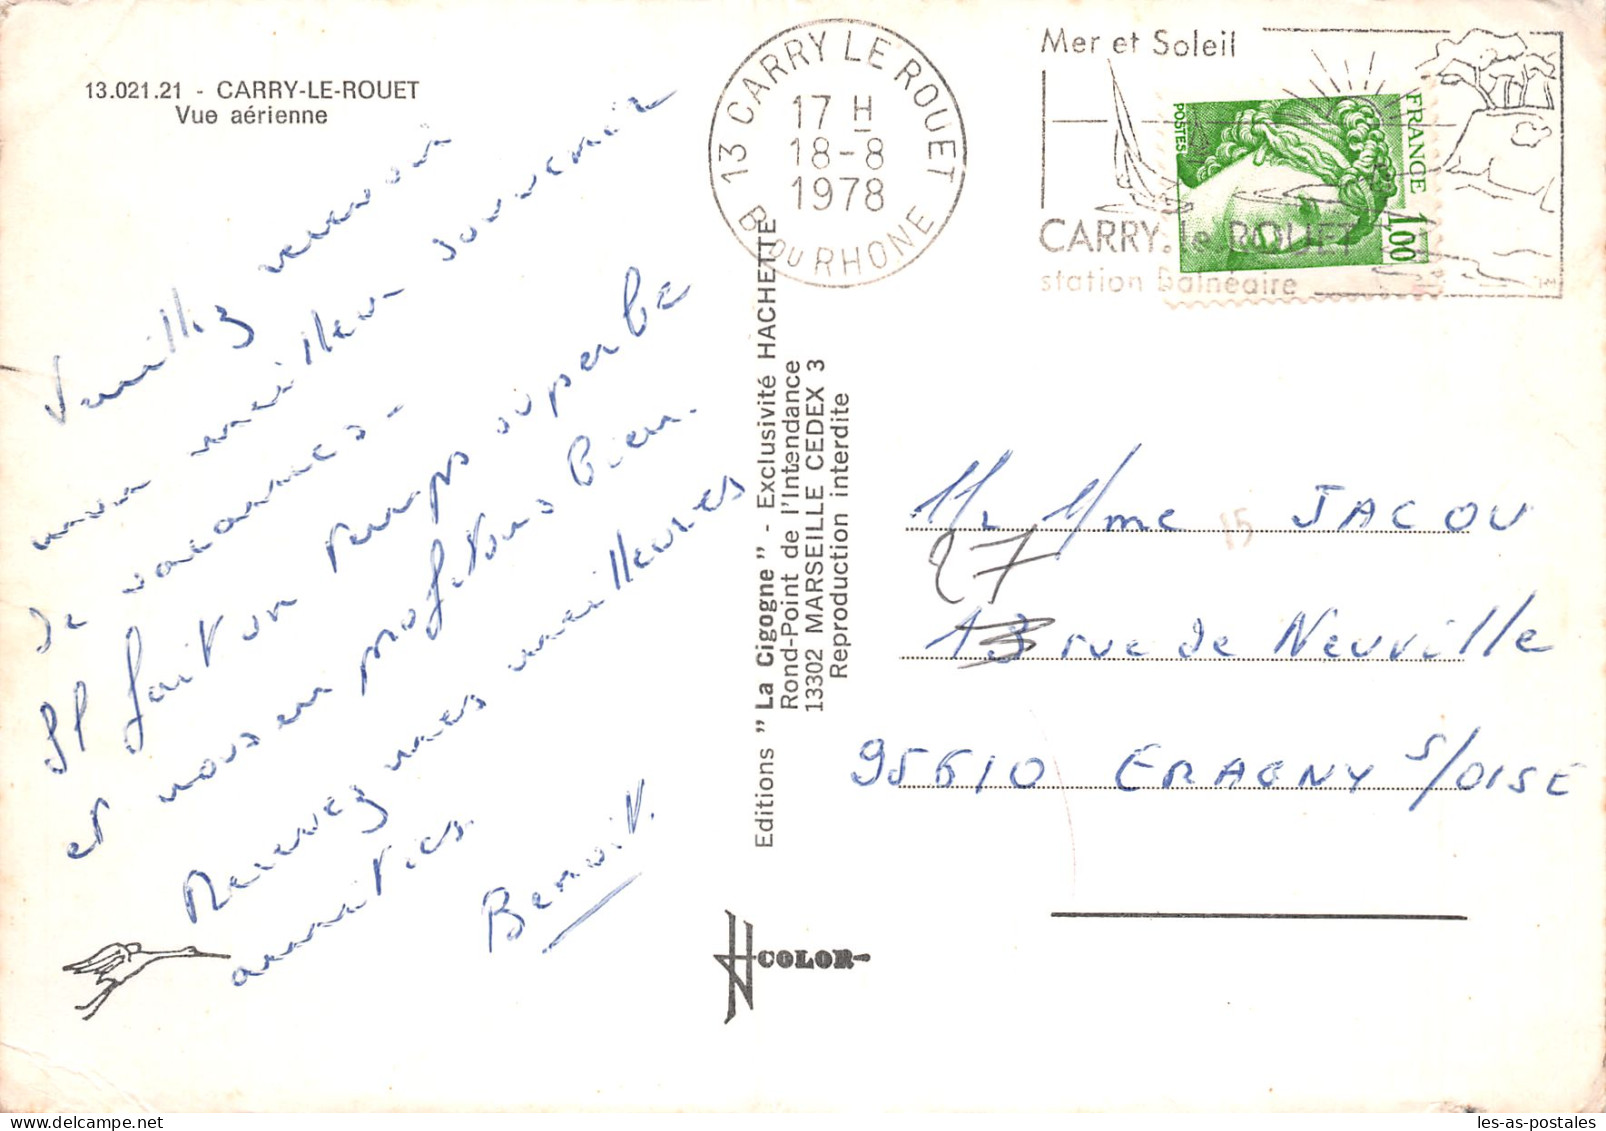 13.021.21 - CARRY-LE-ROUET
Vue aérienne
Veuillez recevoir
mon meilleur souvenir
de vacances -
Il fait un temps superbe
et nous en profitons bien.
Recevez mes meilleures
amitiés.
Benoit.
Editions " La Cigogne " - Exclusivité HACHETTE
Rond-Point de l'Intendance
13302 MARSEILLE CEDEX 3
Reproduction interdite
COLOR
13 CARRY LE ROUET
17 H
18-8
1978
B. DU RHONE
Mer et Soleil
CARRY. le ROUET
station Balnéaire
POSTES
FRANCE
1,00
Mr Mme JACOU
15
27
13 rue de Neuville
95610 ERAGNY S/OISE
les-as-postales - delcampe.net